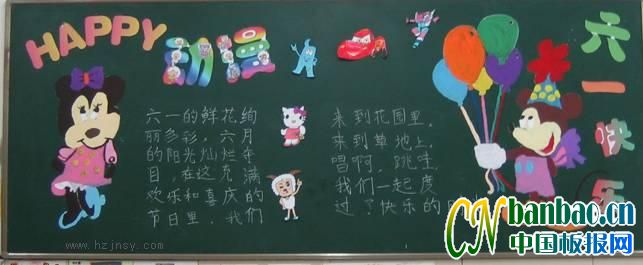 HAPPY
动漫
六一的鲜花绚
丽多彩，六月
的阳光灿烂夺
目，在这充满
欢乐和喜庆的
节日里，我们
来到花园里，
来到草地上，
唱啊，跳哇
我们一起度
过了快乐的
六一快乐
www.hzjnsy.com
CN banbao.cn
中国板报网